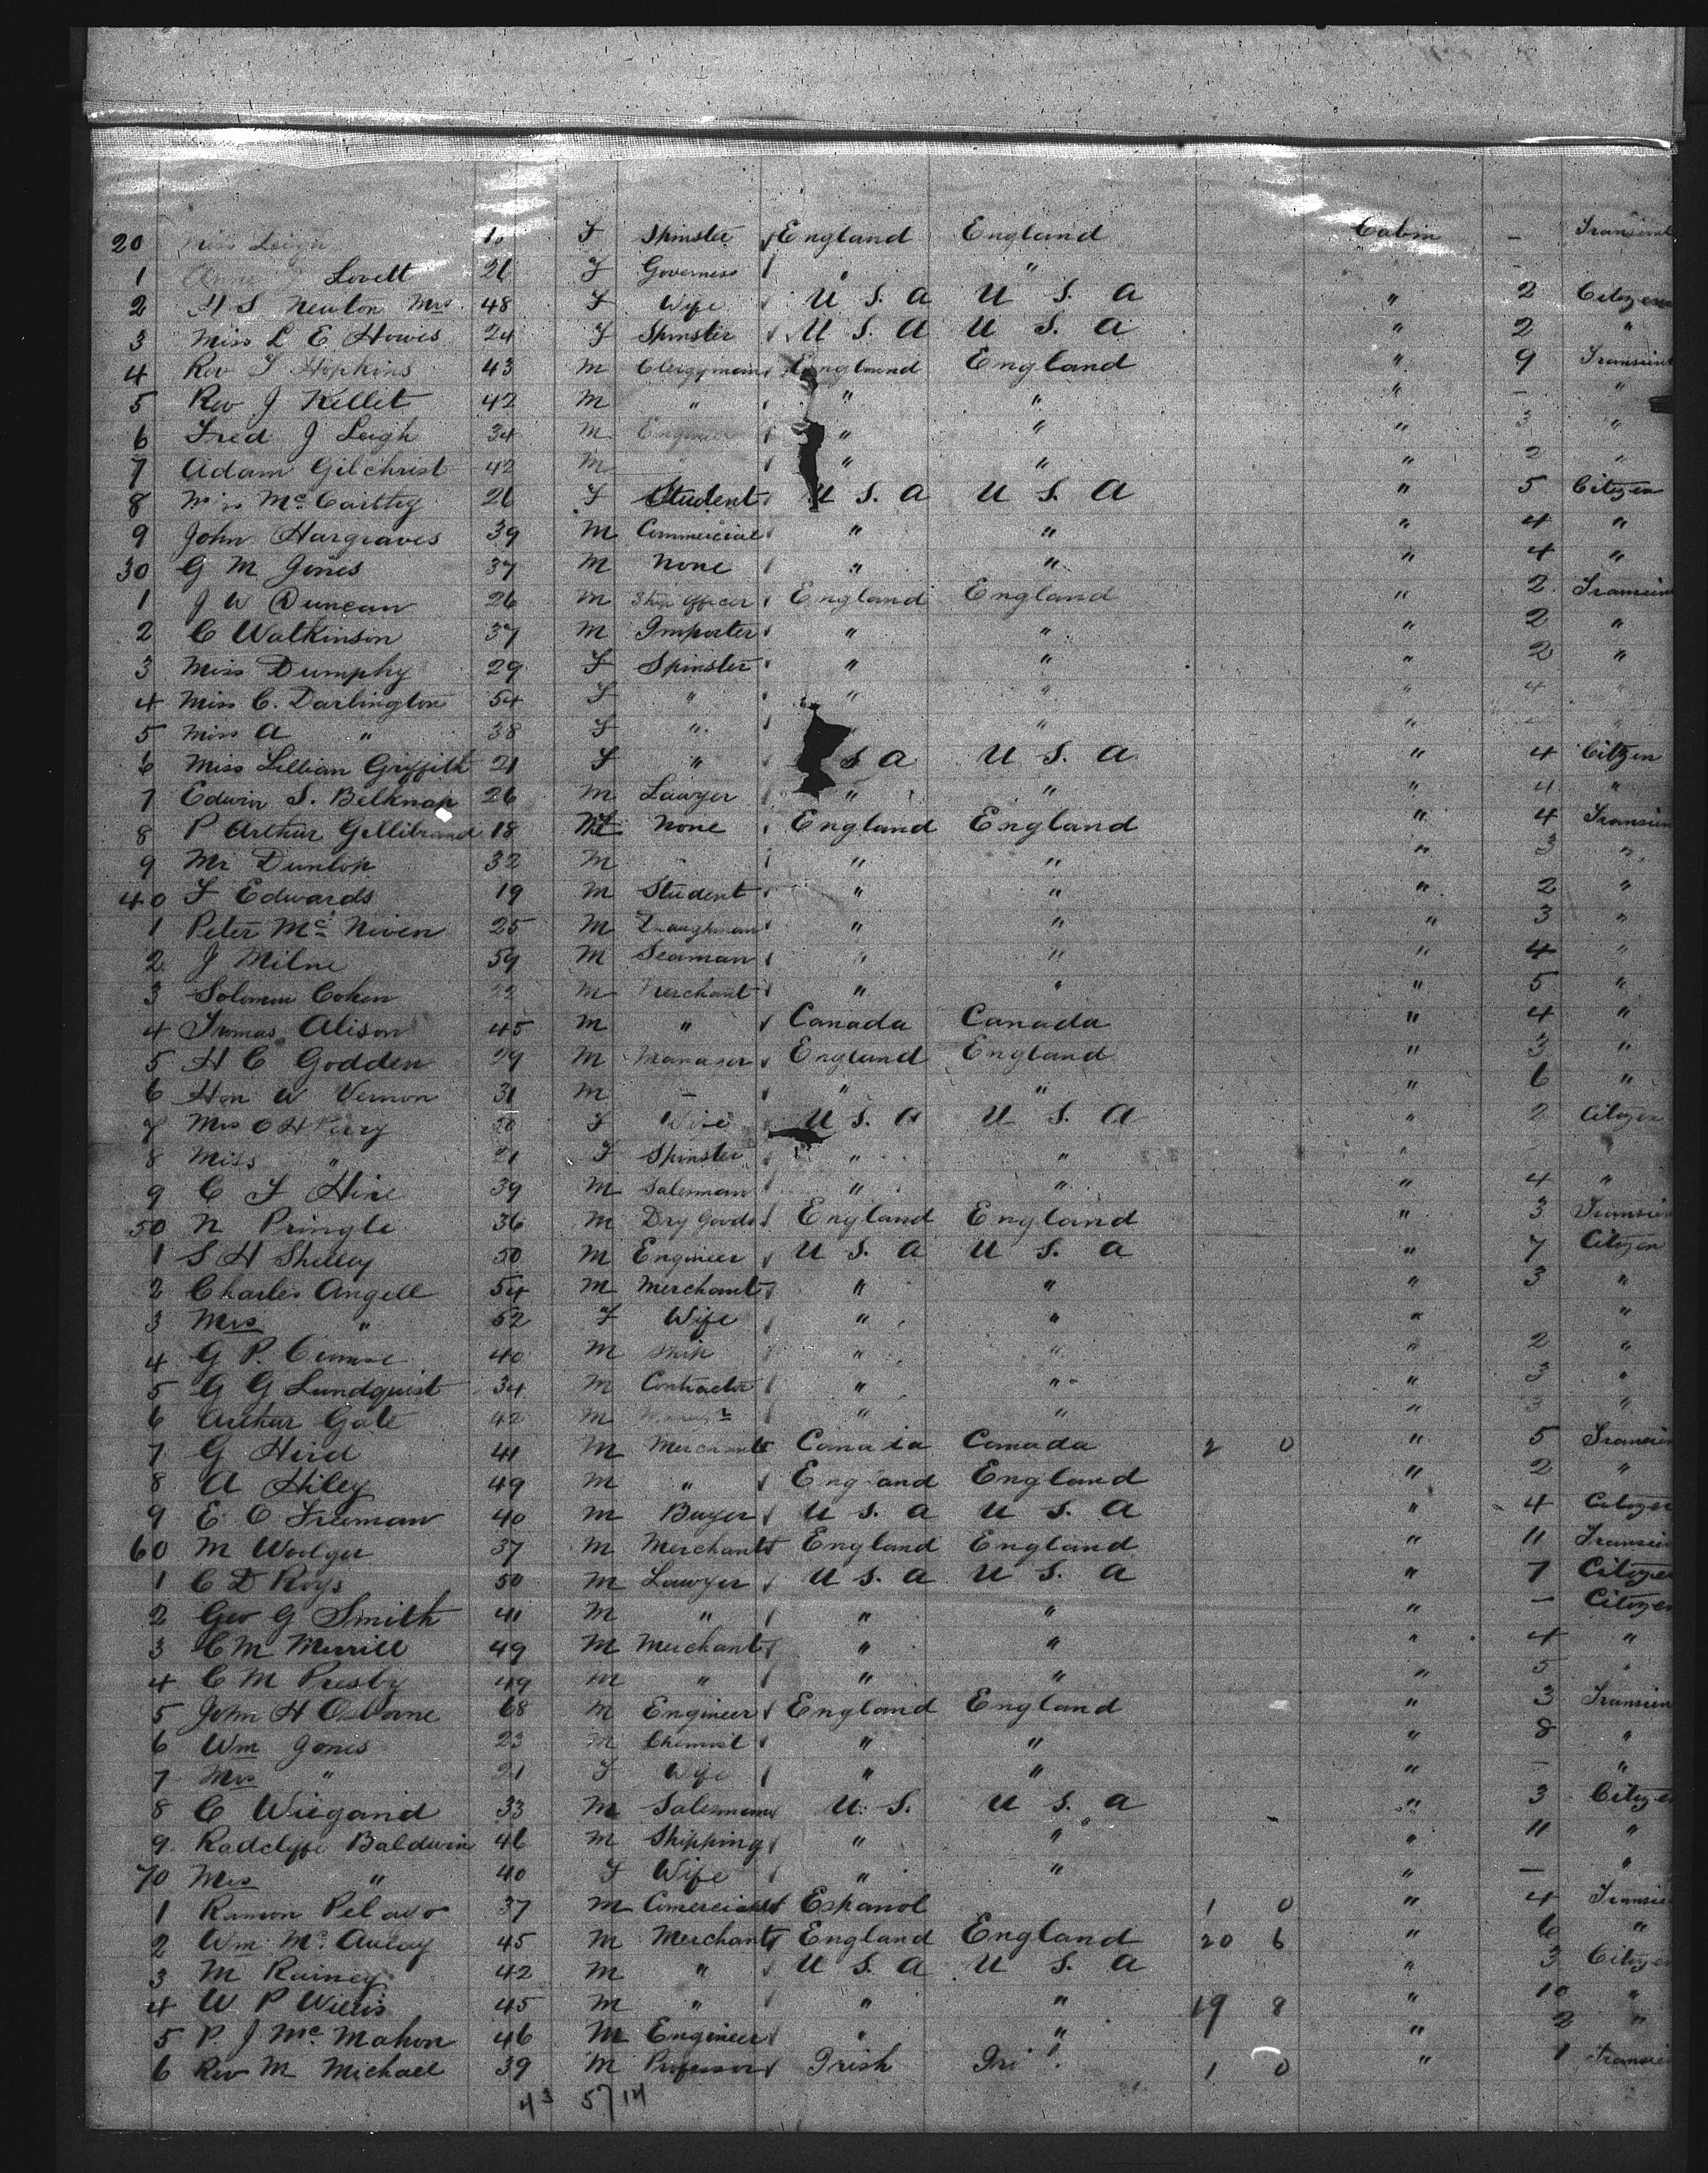 20 Miss Leigh F Spinster England England Cabin — Transient
1 Lovell 26 F Governess " "
2 H S Newton Mrs 48 F Wife U S. A U S. A " 2 Citizen
3 Miss L E Howes 24 F Spinster U S. A U S. A " 2 "
4 Rev T Hopkins 43 M Clergyman England England " 9 Transient
5 Rev J Kellet 42 M " " " " — "
6 Fred J Leigh 34 M Engineer " " " 3 "
7 Adam Gilchrist 42 M " " " " 2 "
8 Miss Mc Carthy 26 F Student U S. A U S. A " 5 Citizen
9 John Hargraves 39 M Commercial " " " 4 "
30 G M Jones 37 M None " " " 4 "
1 J W Duncan 26 M Ship Officer England England " 2 Transient
2 C Watkinson 37 M Importer " " " 2 "
3 Miss Dumphy 29 F Spinster " " " 2 "
4 Miss C. Darlington 54 F " " " " 4 "
5 Miss A " 38 F " " " — "
6 Miss Lillian Griffith 21 F " S A U S. A " 4 Citizen
7 Edwin S. Belknap 26 M Lawyer " " " 4 "
8 P Arthur Gellibrand 18 M None England England " 4 Transien
9 Mr Dunlop 32 M - " " " 3 "
40 F Edwards 19 M Student " " " 2 "
1 Peter Mc Niven 25 M Draughtman " " " 3 "
2 J Milne 59 M Seaman " " " 4 "
3 Solomon Cohen 22 M Merchant " " " 5 "
4 Tomas Alison 45 M " Canada Canada " 4 "
5 H C Godden 29 M Manager England England " 3 "
6 Hon W Vernon 31 M — " " " 6 "
7 Mrs O H Perry 50 F Wife U S. A U S. A " 2 Citizen
8 Miss " 21 F Spinster " " "
9 C F Hine 39 M Salesman " " " 4 "
50 N Pringle 36 M Dry Goods England England " 3 Transien
1 S H Shelley 50 M Engineer U S. A U S. A " 7 Citizen
2 Charles Angell 54 M Merchant " " " 3 "
3 Mrs " 52 F Wife " " " "
4 G P. 40 M Ship " " " 2 "
5 G G Lundquist 34 M Contractor " " " 3 "
6 Arthur Gate 42 M " " " 3 "
7 G Hird 41 M Merchant Canada Canada 2 0 " 5 Transien
8 A Hiley 49 M " England England " 2 "
9 E O Freeman 40 M Buyer U S. A U S. A " 4 Citizen
60 M Woolger 37 M Merchant England England " 11 Transien
1 C D Roys 50 M Lawyer U S. A U S. A " 7 Citizen
2 Geo G Smith 41 M " " " " — Citizen
3 C M Merrill 49 M Merchant " " " 4 "
4 C M Presby 49 M " " " " 5 "
5 John H Osborne 68 M Engineer England England " 3 Transien
6 Wm Jones 23 M Chemist " " " 8 "
7 Mrs " 21 F Wife " " " — "
8 C Wiegand 33 M Salesman U. S. U S. A " 3 Citize
9 Radclyffe Baldwin 46 M Shipping " " " 11 "
70 Mrs " 40 F Wife " " " — "
1 Ramon Pelayo 37 M Comercial Espanol 1 0 " 4 Transie
2 Wm Mc Aulay 45 M Merchant England England 20 6 " 6 "
3 M Rainey 42 M " U S. A U S. A " 3 Citize
4 W P Willis 45 M " " " 19 8 " 10 "
5 P. J Mc Mahon 46 M Engineer " " " 2 "
6 Rev M Michael 39 M Professor Irish Iri 1 0 " 1 Transie
43 57 14